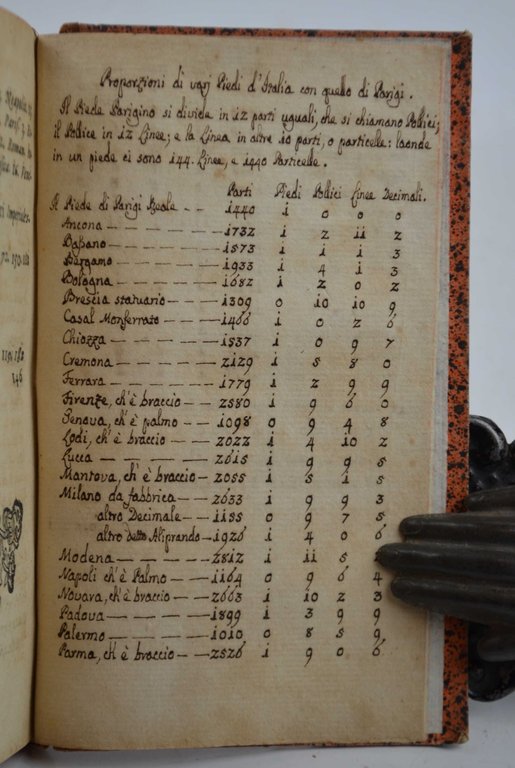 Proporzioni di varj Piedi d'Italia con quello di Parigi.
Il Piede Parigino si divide in 12 parti uguali, che si chiamano Pollici;
il Pollice in 12 Linee; e la Linea in altre 10 parti, o particelle: laonde
in un piede ci sono 144. Linee, e 1440 Particelle.
Parti Piedi Pollici Linee Decimali.
Il Piede di Parigi Reale -- 1440 1 0 0 0
Ancona ----- 1732 1 2 11 2
Bassano ----- 1573 1 1 1 3
Bergamo ----- 1933 1 4 1 3
Bologna ----- 1682 1 2 0 2
Brescia statuario --- 1309 0 10 10 9
Casal Monferrato --- 1466 1 0 2 6
Chiozza ----- 1537 1 0 9 7
Cremona ----- 2129 1 5 8 0
Ferrara ----- 1779 1 2 9 9
Firenze, ch'è braccio --- 2580 1 9 6 0
Genova, ch'è palmo --- 1098 0 9 4 8
Lodi, ch'è braccio --- 2022 1 4 10 2
Lucca ----- 2615 1 9 9 5
Mantova, ch'è braccio -- 2055 1 5 1 5
Milano da fabbrica --- 2633 1 9 9 3
altro Decimale --- 1155 0 9 7 5
altro detto Aliprando -- 1926 1 4 0 6
Modena ----- 2812 1 11 5
Napoli ch'è Palmo --- 1164 0 9 6 4
Novara, ch'è braccio --- 2663 1 10 2 3
Padova ----- 1899 1 3 9 9
Palermo ----- 1010 0 8 5 9
Parma, ch'è braccio -- 2526 1 9 0 6